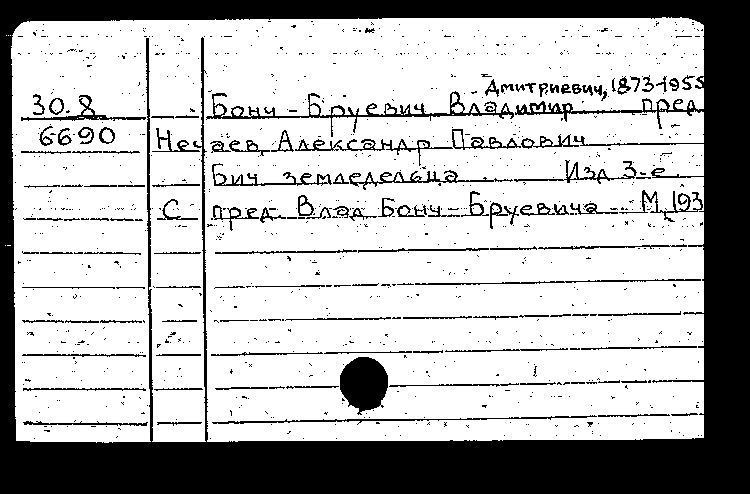 Дмитриевич, 1873-1955
30.8 Бонч-Бруевич, Владимир пред.
6690 Нечаев, Александр Павлович
Бич земледельца Изд 3-е
С пред. Влад Бонч-Бруевича М, 193